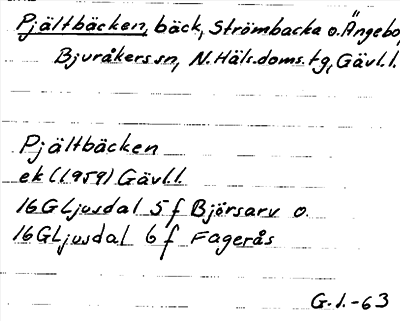 Pjältbäcken, bäck, Strömbacka o. Ängebo,
Bjuråkers sn, N. Häls. doms. tg, Gävl. l.
Pjältbäcken
ek (1959) Gävl. l.
16G Ljusdal 5 f Björsarv o.
16G Ljusdal 6 f Fagerås
G. I. -63